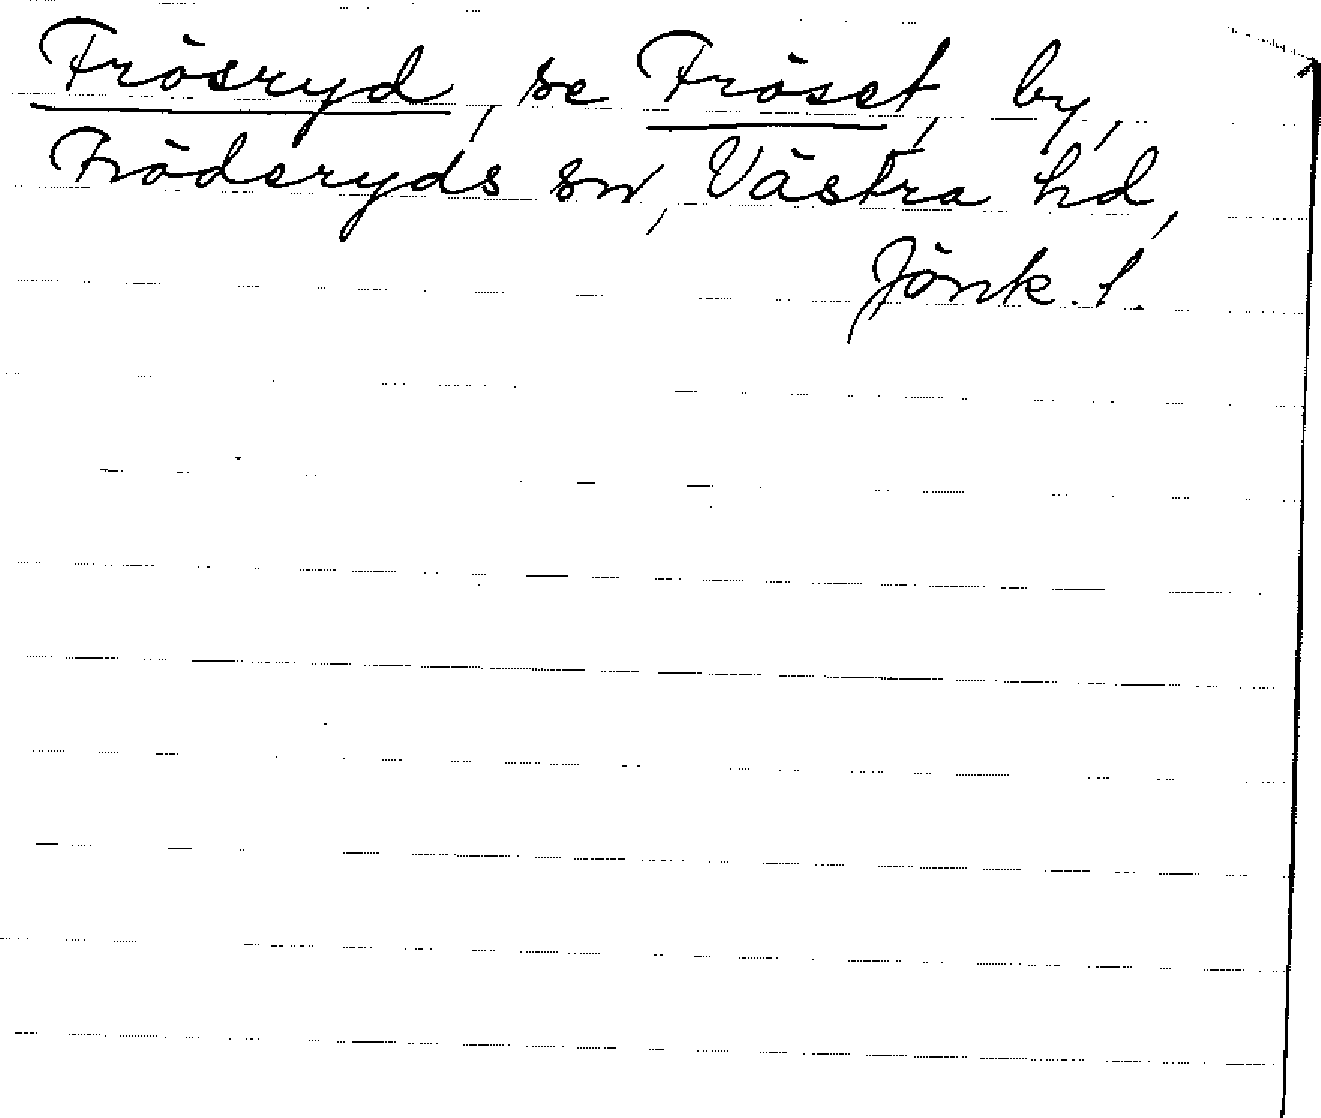 Frösryd, se Fröset, by,
Frödsryds sn, Västra hd,
Jönk. l.